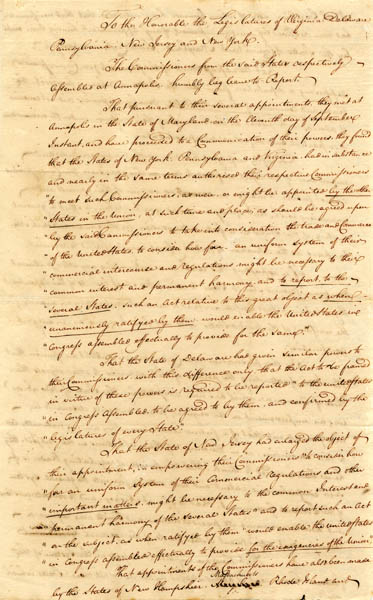 To the Honorable the Legislatures of Virginia Delaware
Pennsylvania New Jersey and New York.
The Commissioners from the said States respectively
Assembled at Annapolis humbly beg leave to Report
That pursuant to their several appointments, they met at
Annapolis in the State of Maryland on the Eleventh day of September
Instant, and have proceeded to a Communication of their powers, they found
that the States of New York, Pennsylvania and Virginia had in substance
and nearly in the same terms authorised their respective Commissioners
to meet such Commissioners, as were, or might be, appointed by the other
"States in the Union, at such time and place, as should be agreed upon
"by the said Commissioners to take into consideration the trade and Commerce
"of the United States, to consider how far an uniform system of their
"commercial intercourse and regulations might be necessary to their
"common interest and permanent harmony, and to report to the
"several States, such an Act relative to this great object as when
"unanimously ratified by them would enable the United States in
"Congress assembled effectually to provide for the same."
That the State of Delaware had given similar powers to
their Commissioners, with this difference only that the Act to be framed
in virtue of these powers is required to be reported "to the United States
"in Congress Assembled, to be agreed to by them, and confirmed by the
"legislatures of every State."
That the State of New Jersey had enlarged the object of
their appointment, empowering their Commissioners "to consider how
"far an uniform System of their Commercial Regulations and other
"important matters, might be necessary to the common Interest and
"permanent harmony of the several States" and to report such an Act
on the subject, as when ratified by them "would enable the United States
"in Congress assembled effectually to provide for the exigencies of the Union"
That appointments of Commissioners have also been made
by the States of New Hampshire, Massachusetts Rhode Island and